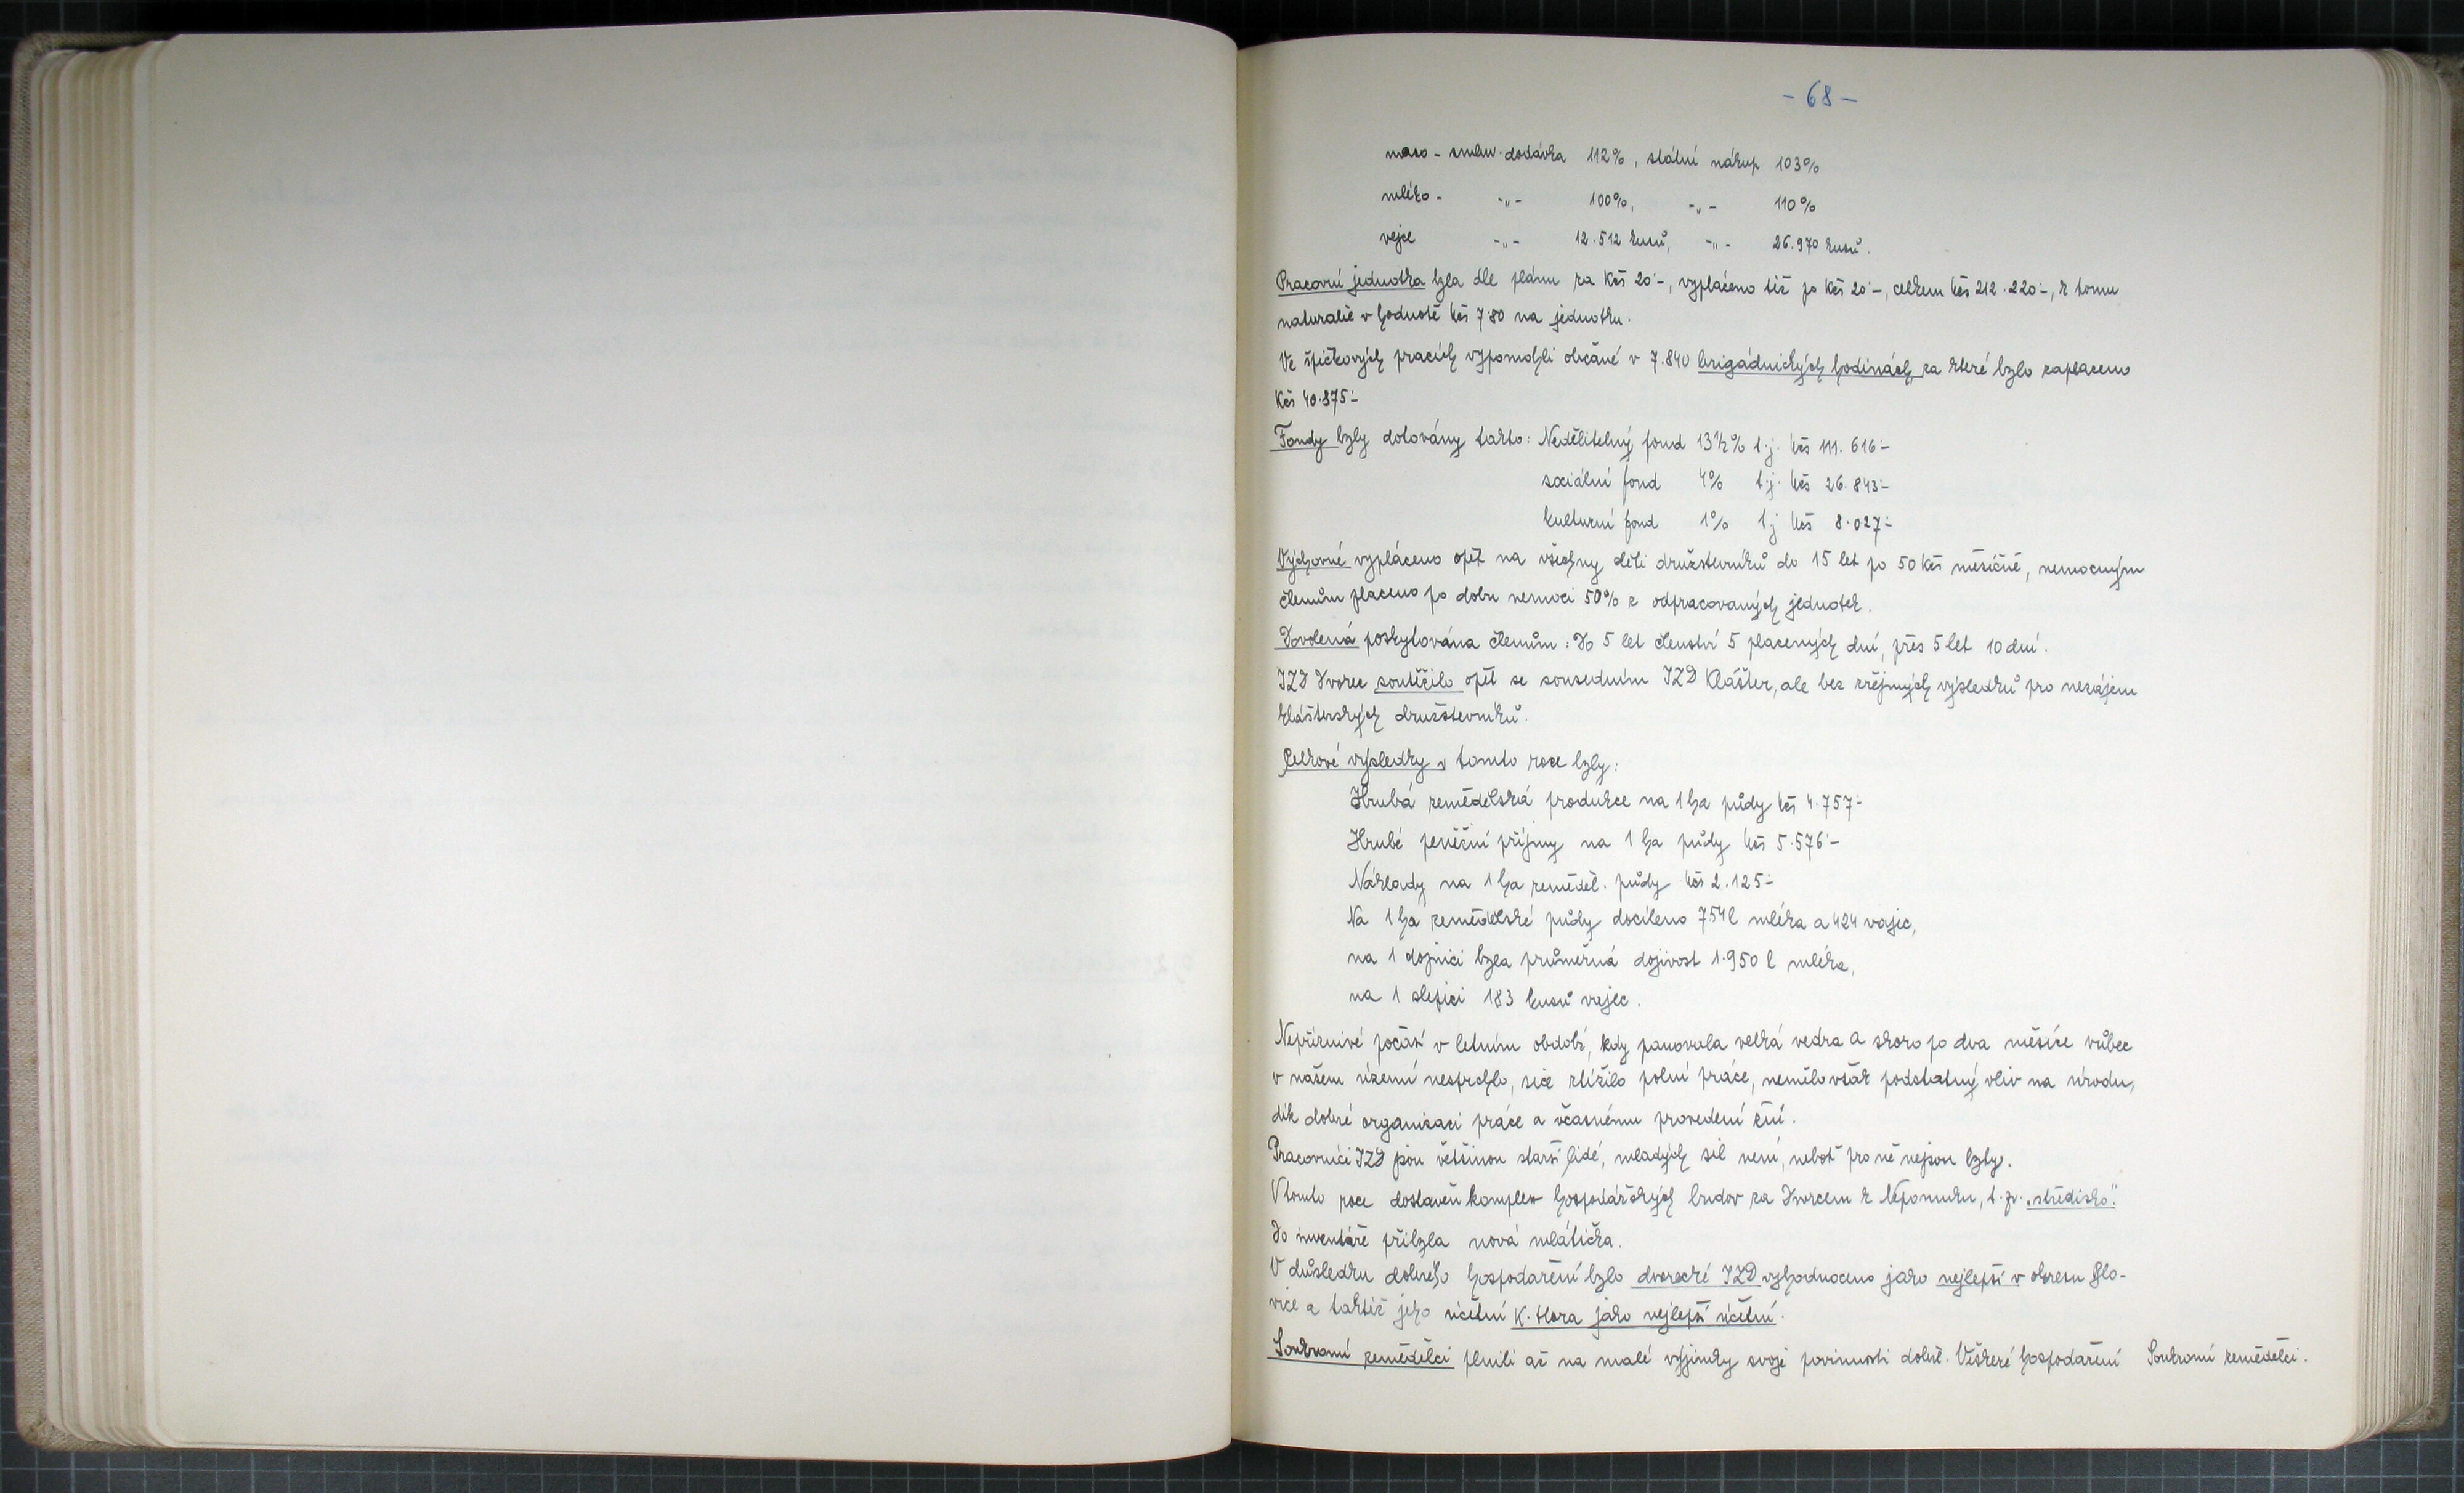 - 68 -
maso - smluv. dodávka 112%, státní nákup 103%
mléko - -„- 100%, -„- 110%
vejce -„- 12.512 kusů, -„- 26.970 kusů.
Pracovní jednotka byla dle plánu za Kčs 20·-, vypláceno též po Kčs 20·-, celkem Kčs 212.220·-, k tomu
naturalie v hodnotě Kčs 7·80 na jednotku.
Ve špičkových pracích vypomohli občané v 7.840 brigádnických hodinách, za které bylo zaplaceno
Kčs 40.875·-
Fondy byly dotovány takto: Nedělitelný fond 13½% t.j. Kčs 111.616·-
sociální fond 4% t.j. Kčs 26.843·-
kulturní fond 1% t.j Kčs 8.027·-
Výchovné vypláceno opět na všechny děti družstevníků do 15 let po 50 Kčs měsíčně, nemocným
členům placeno po dobu nemoci 50% z odpracovaných jednotek.
Dovolená poskytována členům: Do 5 let členství 5 placených dní, přes 5 let 10 dní.
JZD Dvorec soutěžilo opět se sousedním JZD Klášter, ale bez zřejmých výsledků pro nezájem
klášterských družstevníků.
Celkové výsledky v tomto roce byly:
Hrubá zemědělská produkce na 1 ha půdy Kčs 4.757·-
Hrubé peněžní příjmy na 1 ha půdy Kčs 5.576·-
Náklady na 1 ha zeměděl. půdy Kčs 2.125·-
Na 1 ha zemědělské půdy docíleno 754 l mléka a 424 vajec,
na 1 dojnici byla průměrná dojivost 1.950 l mléka,
na 1 slepici 183 kusů vajec.
Nepříznivé počasí v letním období, kdy panovala velká vedra a skoro po dva měsíce vůbec
v našem území nesprchlo, sice ztížilo polní práce, nemělo však podstatný vliv na úrodu,
dík dobré organisaci práce a včasnému provedení žní.
Pracovníci JZD jsou většinou starší lidé, mladých sil není, neboť pro ně nejsou byty.
V tomto roce dostavěn komplex hospodářských budov za Dvorcem k Nepomuku, t. zv. „středisko".
Do inventáře přibyla nová mlátička.
V důsledku dobrého hospodaření bylo dvorecké JZD vyhodnoceno jako nejlepší v okresu Blo-
vice a taktéž jeho účetní K. Hora jako nejlepší účetní.
Soukromí zemědělci plnili až na malé výjimky svoje povinnosti dobře. Veškeré hospodaření Soukromí zemědělci.